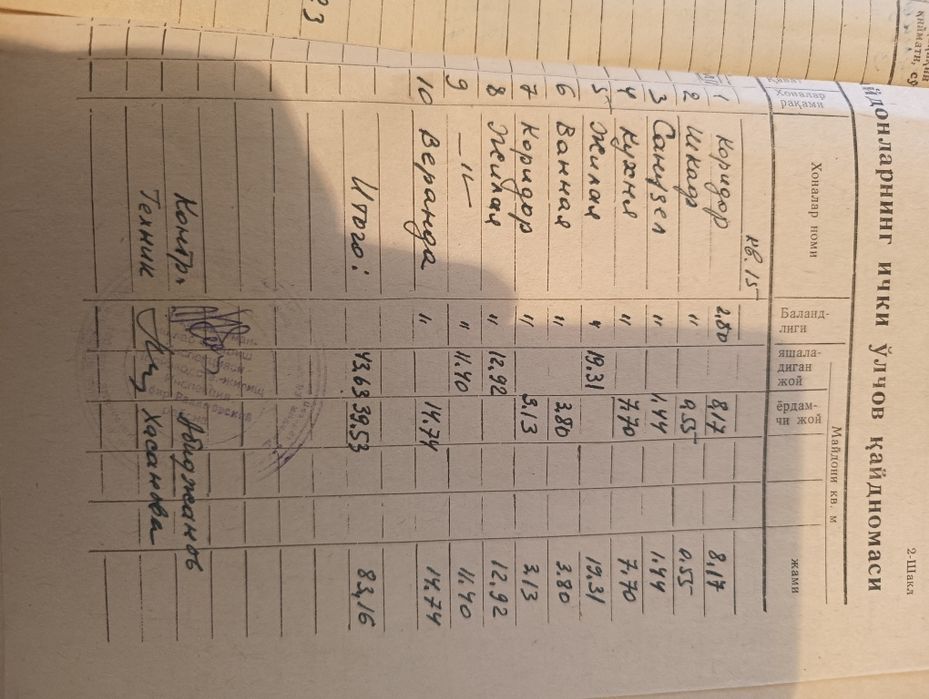 2-Шакл
йдонларнинг ички ўлчов қайдномаси
Хоналар рақами
Хоналар номи
Баланд-лиги
Майдони кв. м
яшала-диган жой
ёрдам-чи жой
жами
кв. 15
1 Коридор 2.80 8,17 8,17
2 Шкаф " 0,55 0.55
3 Санузел " 1.44 1.44
4 Кухня " 7.70 7.70
5 Жилая " 19.31 19.31
6 Ванная " 3.80 3.80
7 Коридор " 3.13 3.13
8 Жилая " 12,92 12,92
9 –"– " 11.40 11.40
10 Веранда " 14.74 14.74
Итого: 43,63 39,53 83,16
Контр. Абиджанов
Техник Хасанова